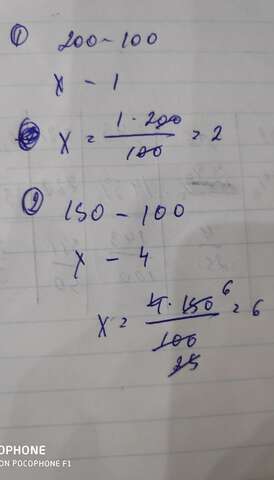 ① 200 – 100
x – 1
x = 1 · 200 / 100 = 2
② 150 – 100
x – 4
x = 4 · 150 6 / 100 25 = 6
OPHONE
ON POCOPHONE F1